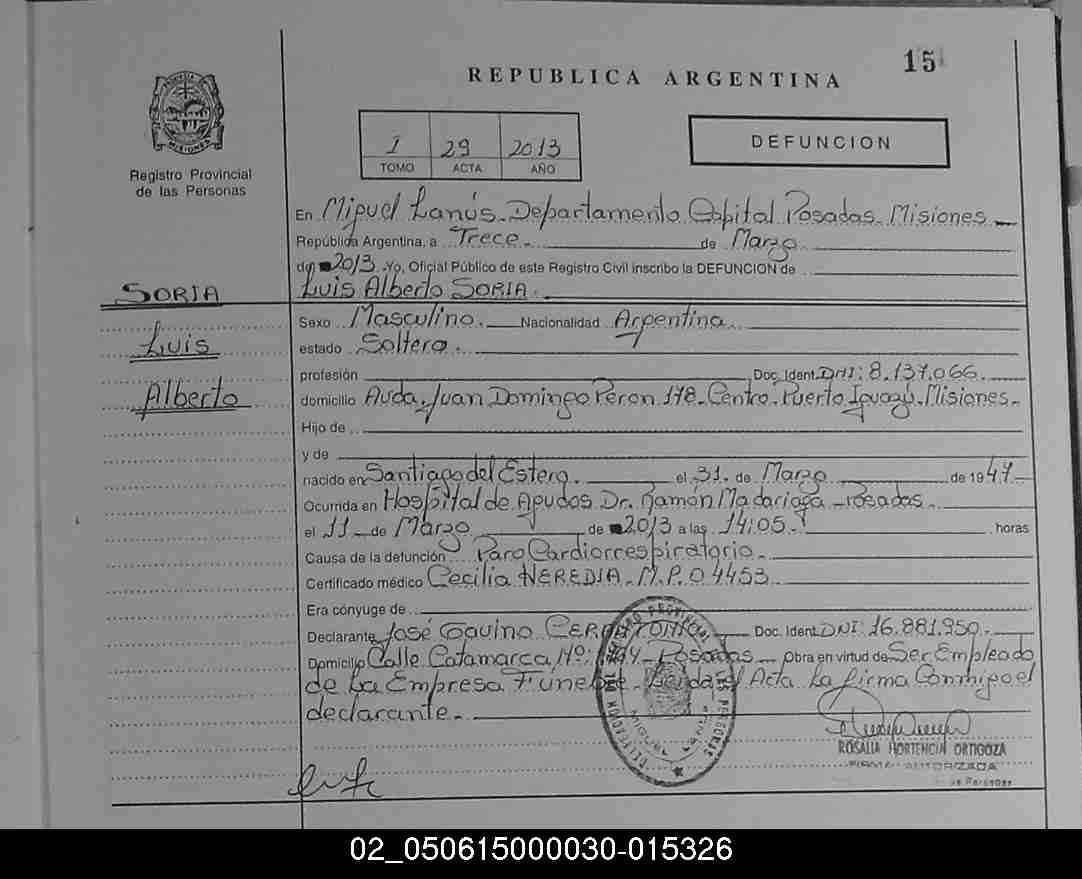 15
REPUBLICA ARGENTINA
1 29 2013
TOMO ACTA AÑO
DEFUNCION
MISIONES
Registro Provincial
de las Personas
SORIA
Luis
Alberto
En Miguel Lanús. Departamento Capital Posadas. Misiones
República Argentina, a Trece. de Marzo
de 2013 Yo, Oficial Público de este Registro Civil inscribo la DEFUNCION de
Luis Alberto SORIA.
Sexo Masculino. Nacionalidad Argentina.
estado Soltero.
profesión Doc. Ident. DNI: 8.137.066.
domicilio Avda. Juan Domingo Peron 178. Centro. Puerto Iguazú. Misiones.
Hijo de
y de
nacido en Santiago del Estero. el 31. de Marzo de 1947
Ocurrida en Hospital de Agudos Dr. Ramón Madariaga - Posadas.
el 11 de Marzo de 2013 a las 14:05. horas
Causa de la defunción Paro Cardiorrespiratorio.
Certificado médico Cecilia HEREDIA. M.P. 04453
Era cónyuge de
Declarante José Gauino Doc. Ident. DNI: 16.881.950.
Domicilio Calle Catamarca Nº: Posadas Obra en virtud de Ser Empleado
de La Empresa Funebre. Acta La firma Conmigo el
declarante.
ROSALIA HORTENCIA ORTIGOZA
FIRMA AUTORIZADA
de Personas
02_050615000030-015326